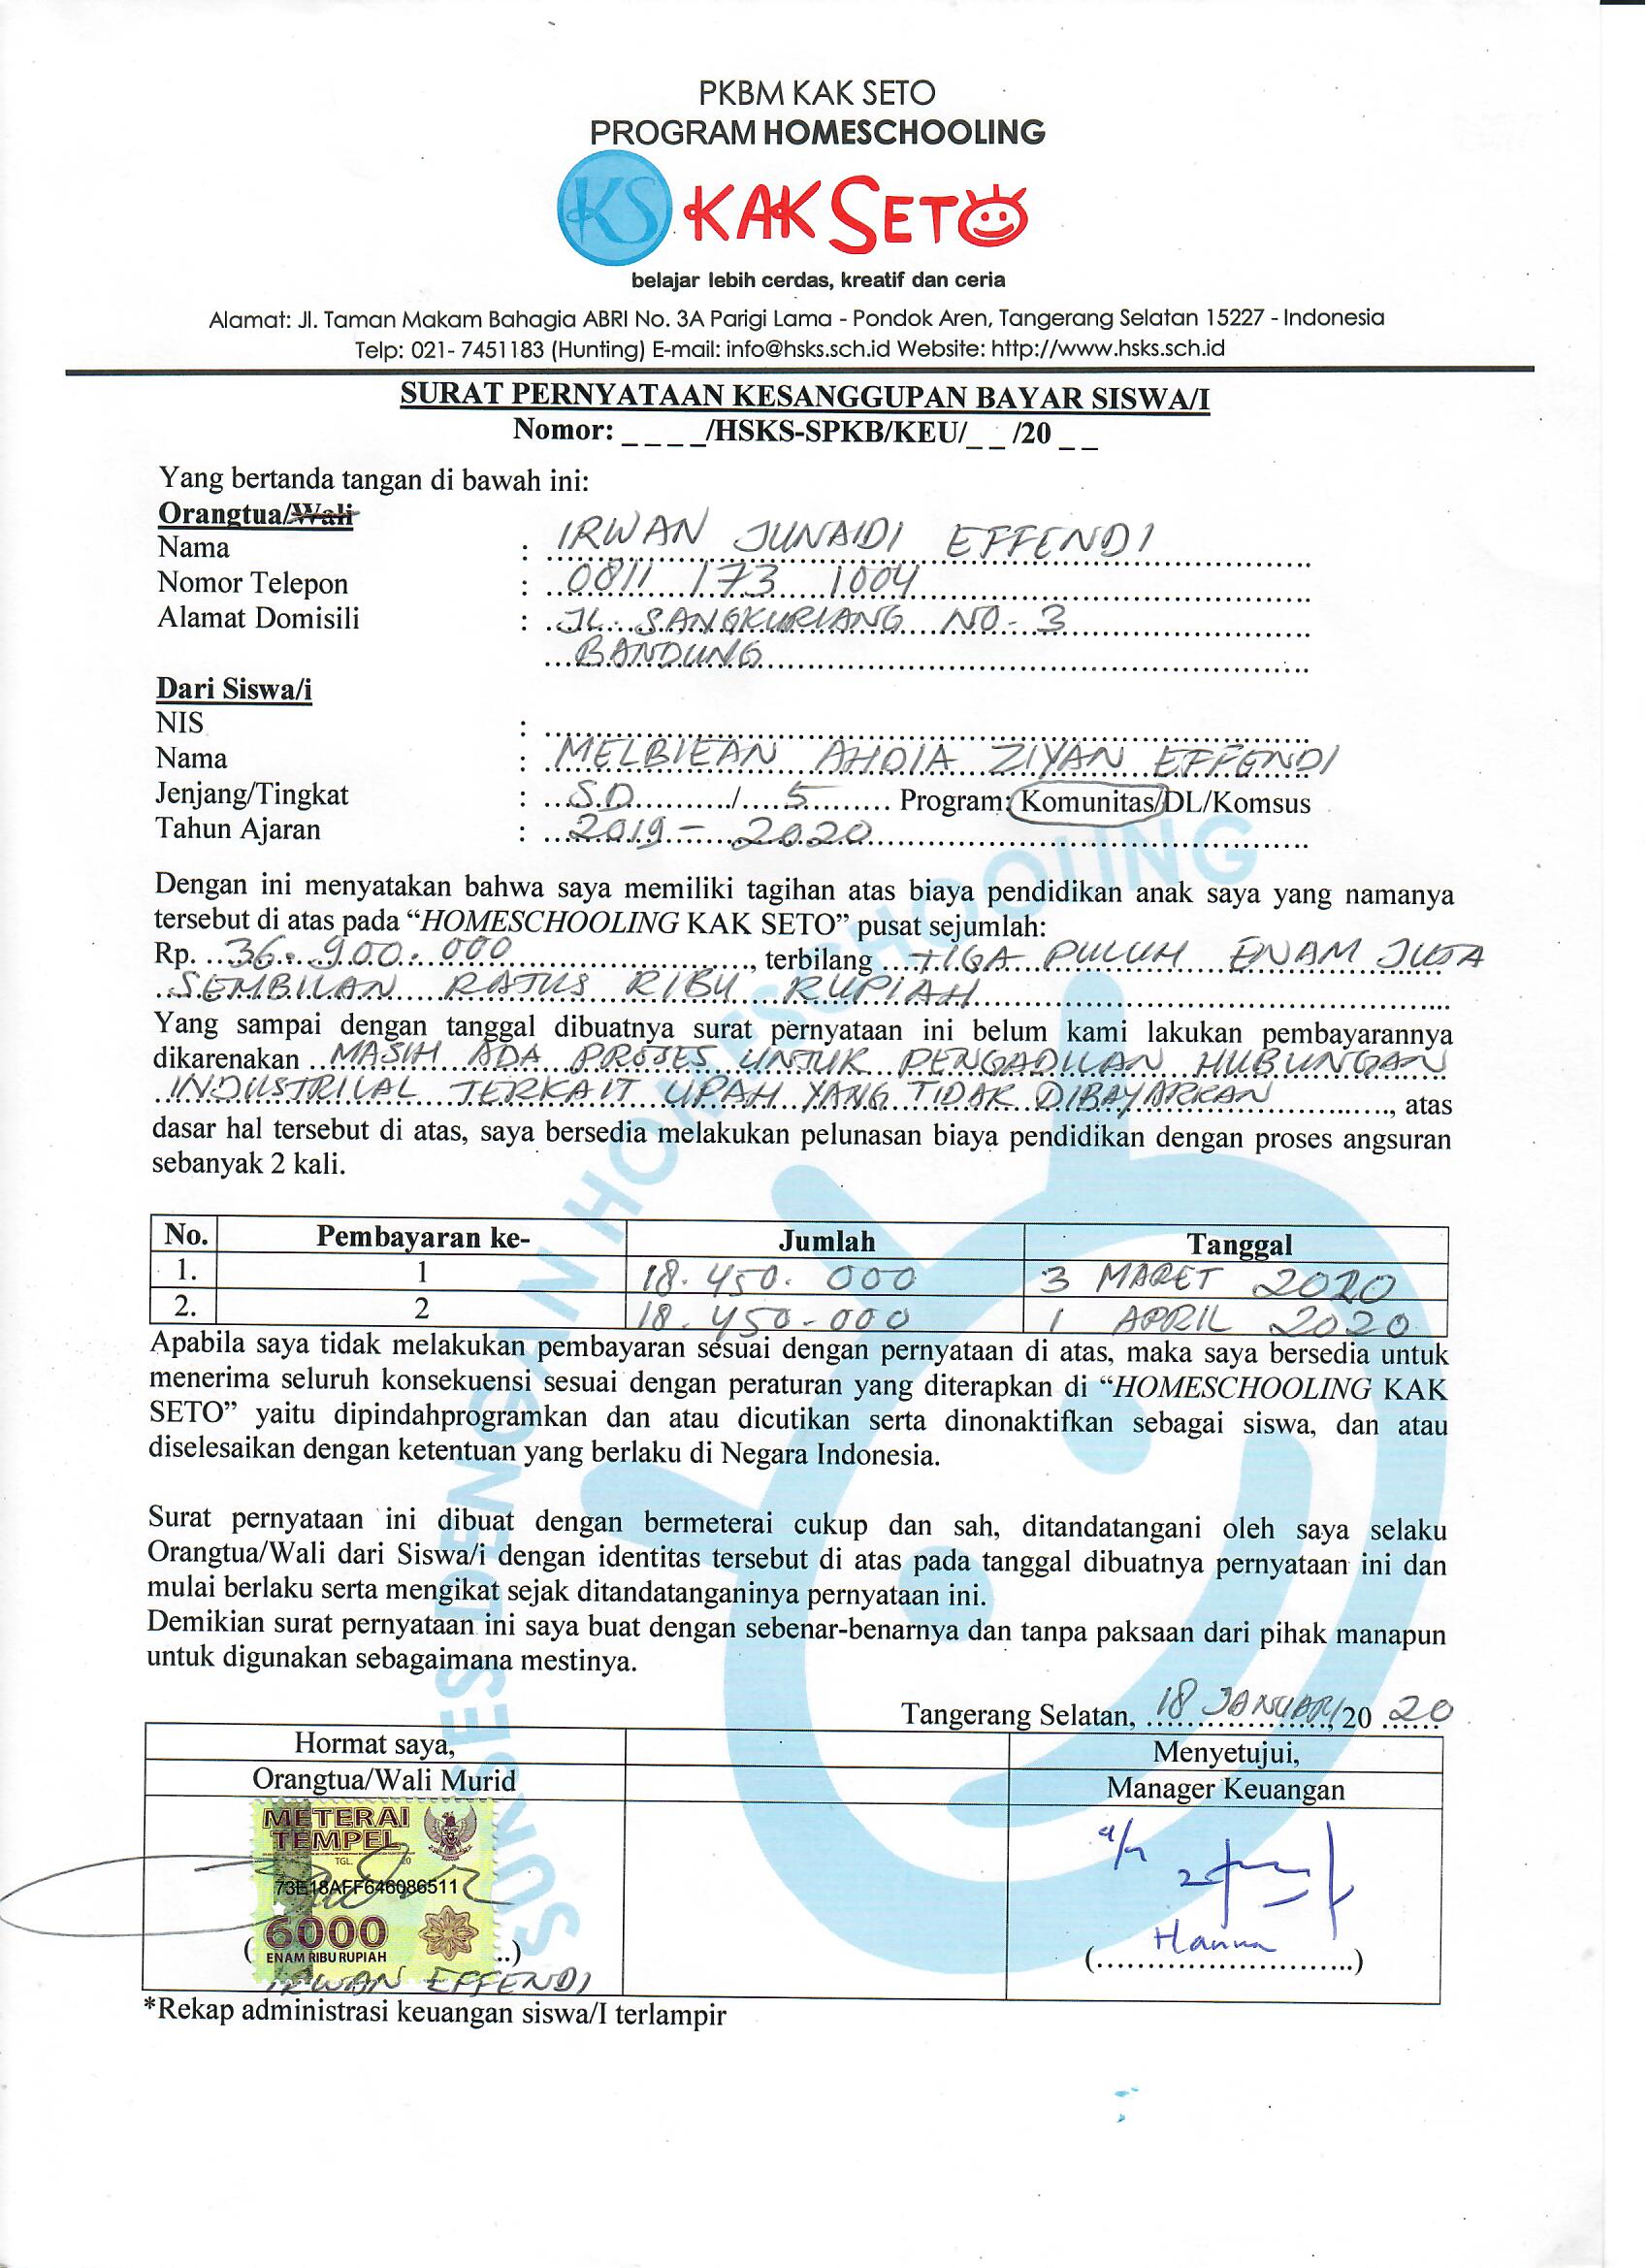 PKBM KAK SETO
PROGRAM HOMESCHOOLING
KS KAK SETO
belajar lebih cerdas, kreatif dan ceria
Alamat: Jl. Taman Makam Bahagia ABRI No. 3A Parigi Lama - Pondok Aren, Tangerang Selatan 15227 - Indonesia
Telp: 021- 7451183 (Hunting) E-mail: info@hsks.sch.id Website: http://www.hsks.sch.id
SURAT PERNYATAAN KESANGGUPAN BAYAR SISWA/I
Nomor: _ _ _ _/HSKS-SPKB/KEU/_ _ /20 _ _
Yang bertanda tangan di bawah ini:
Orangtua/Wali
Nama : IRWAN JUNAIDI EFFENDI
Nomor Telepon : 0811 173 1004
Alamat Domisili : JL. SANGKURIANG NO. 3
BANDUNG
Dari Siswa/i
NIS :
Nama : MELBIEAN AHDIA ZIYAN EFFENDI
Jenjang/Tingkat : SD / 5 Program: Komunitas/DL/Komsus
Tahun Ajaran : 2019 - 2020
Dengan ini menyatakan bahwa saya memiliki tagihan atas biaya pendidikan anak saya yang namanya
tersebut di atas pada “HOMESCHOOLING KAK SETO” pusat sejumlah:
Rp. 36.900.000, terbilang TIGA PULUH ENAM JUTA
SEMBILAN RATUS RIBU RUPIAH
Yang sampai dengan tanggal dibuatnya surat pernyataan ini belum kami lakukan pembayarannya
dikarenakan MASIH ADA PROSES UNTUK PENGADILAN HUBUNGAN
INDUSTRILAL TERKAIT UPAH YANG TIDAK DIBAYARKAN, atas
dasar hal tersebut di atas, saya bersedia melakukan pelunasan biaya pendidikan dengan proses angsuran
sebanyak 2 kali.
No. Pembayaran ke- Jumlah Tanggal
1. 1 18.450.000 3 MARET 2020
2. 2 18.450.000 1 APRIL 2020
Apabila saya tidak melakukan pembayaran sesuai dengan pernyataan di atas, maka saya bersedia untuk
menerima seluruh konsekuensi sesuai dengan peraturan yang diterapkan di “HOMESCHOOLING KAK
SETO” yaitu dipindahprogramkan dan atau dicutikan serta dinonaktifkan sebagai siswa, dan atau
diselesaikan dengan ketentuan yang berlaku di Negara Indonesia.
Surat pernyataan ini dibuat dengan bermeterai cukup dan sah, ditandatangani oleh saya selaku
Orangtua/Wali dari Siswa/i dengan identitas tersebut di atas pada tanggal dibuatnya pernyataan ini dan
mulai berlaku serta mengikat sejak ditandatanganinya pernyataan ini.
Demikian surat pernyataan ini saya buat dengan sebenar-benarnya dan tanpa paksaan dari pihak manapun
untuk digunakan sebagaimana mestinya.
Tangerang Selatan, 18 JANUARI, 20 20
Hormat saya, Menyetujui,
Orangtua/Wali Murid Manager Keuangan
METERAI
TEMPEL
TGL. 20
73E18AFF646086511
6000
ENAM RIBU RUPIAH
a/n
Hanna
(..........................)
IRWAN EFFENDI
*Rekap administrasi keuangan siswa/I terlampir
SUKSES DENGAN HOMESCHOOLING